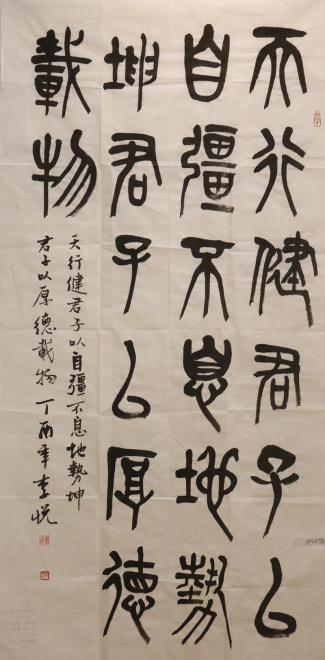 天行健君子以
自彊不息地勢
坤君子以厚德
載物
天行健君子以自彊不息地勢坤
君子以厚德載物丁酉年李悦